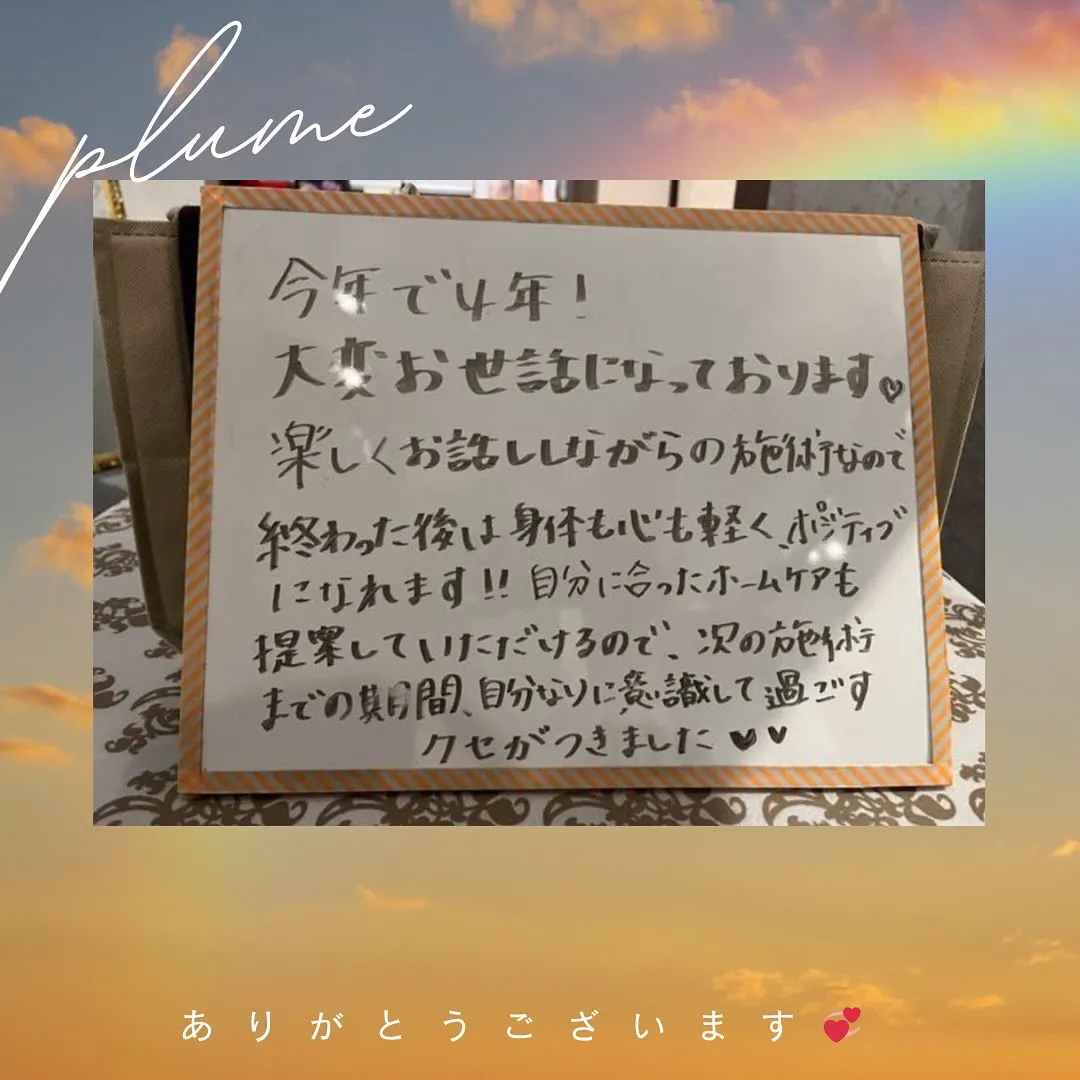 plume
今年で4年!
大変お世話になっております♡
楽しくお話ししながらの施術なので
終わった後は身体も心も軽く、ポジティブ
になれます!! 自分に合ったホームケアも
提案していただけるので、次の施術
までの期間、自分なりに意識して過ごす
クセがつきました♥♥
ありがとうございます💕